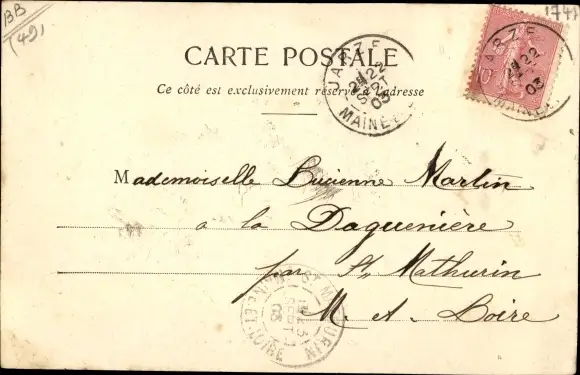 BB
(49)
CARTE POSTALE
Ce côté est exclusivement réservé à l'adresse
JARZE
22
SEPT
03
MAINE
JARZE
22
03
MAINE
Mademoiselle Lucienne Martin
a la Daguenière
par St Mathurin
M. et Loire
ST MATHURIN
SEPT
03
ET-LOIRE